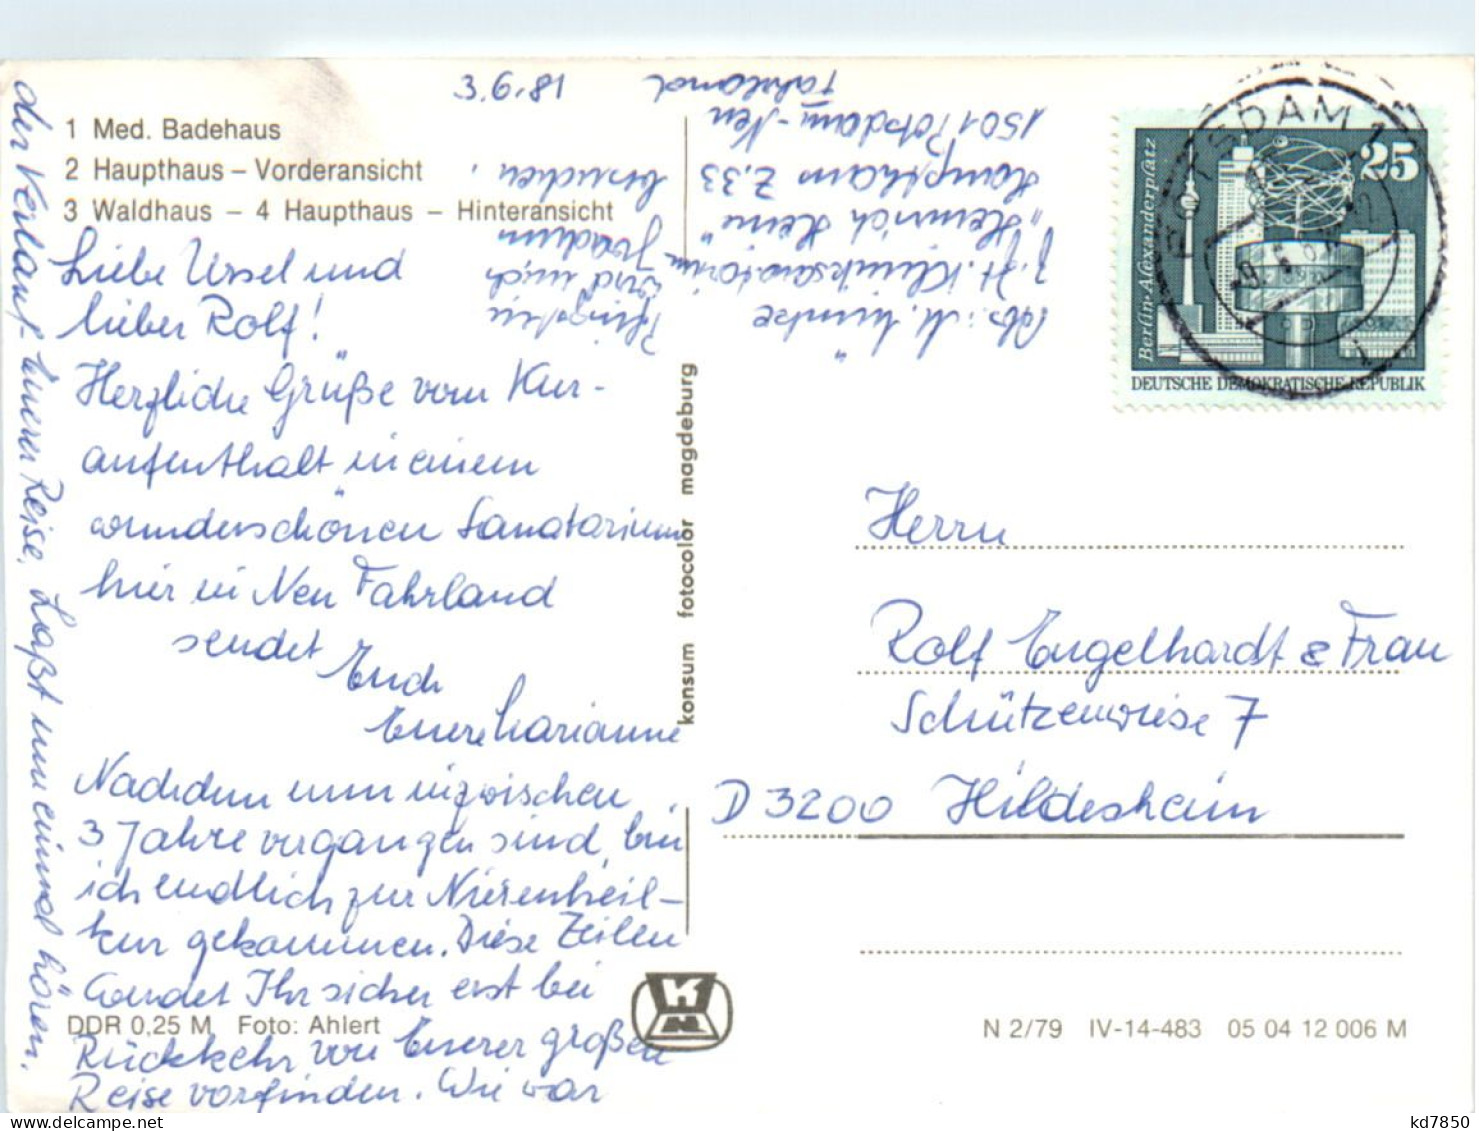 3.6.81
1 Med. Badehaus
2 Haupthaus – Vorderansicht
3 Waldhaus – 4 Haupthaus – Hinteransicht
Liebe Ursel und
lieber Rolf!
Herzliche Grüße vom Kur-
aufenthalt in einem
wunderschönen Sanatorium
hier in Neu Fahrland
sendet Euch
Eure Marianne
Nachdem nun inzwischen
3 Jahre vergangen sind, bin
ich endlich zur Nierenheil-
kur gekommen. Diese Zeilen
werdet Ihr sicher erst bei
Rückkehr von Eurer großen
Reise vorfinden. Wie war
der Verlauf Eurer Reise, Laßt nun einmal hören.
Pfingsten
wird mich
Joachim
besuchen.
DDR 0,25 M Foto: Ahlert
konsum fotocolor magdeburg
Abs.: M.
z. Zt. Kliniksanatorium
"Heinrich Heine"
Z. 33
1501 Potsdam-Neu
Fahrland
POTSDAM 1
25
Berlin-Alexanderplatz
DEUTSCHE DEMOKRATISCHE REPUBLIK
Herrn
Rolf Engelhardt & Frau
Schützenwiese 7
D 3200 Hildesheim
N 2/79 IV-14-483 05 04 12 006 M
kd7850